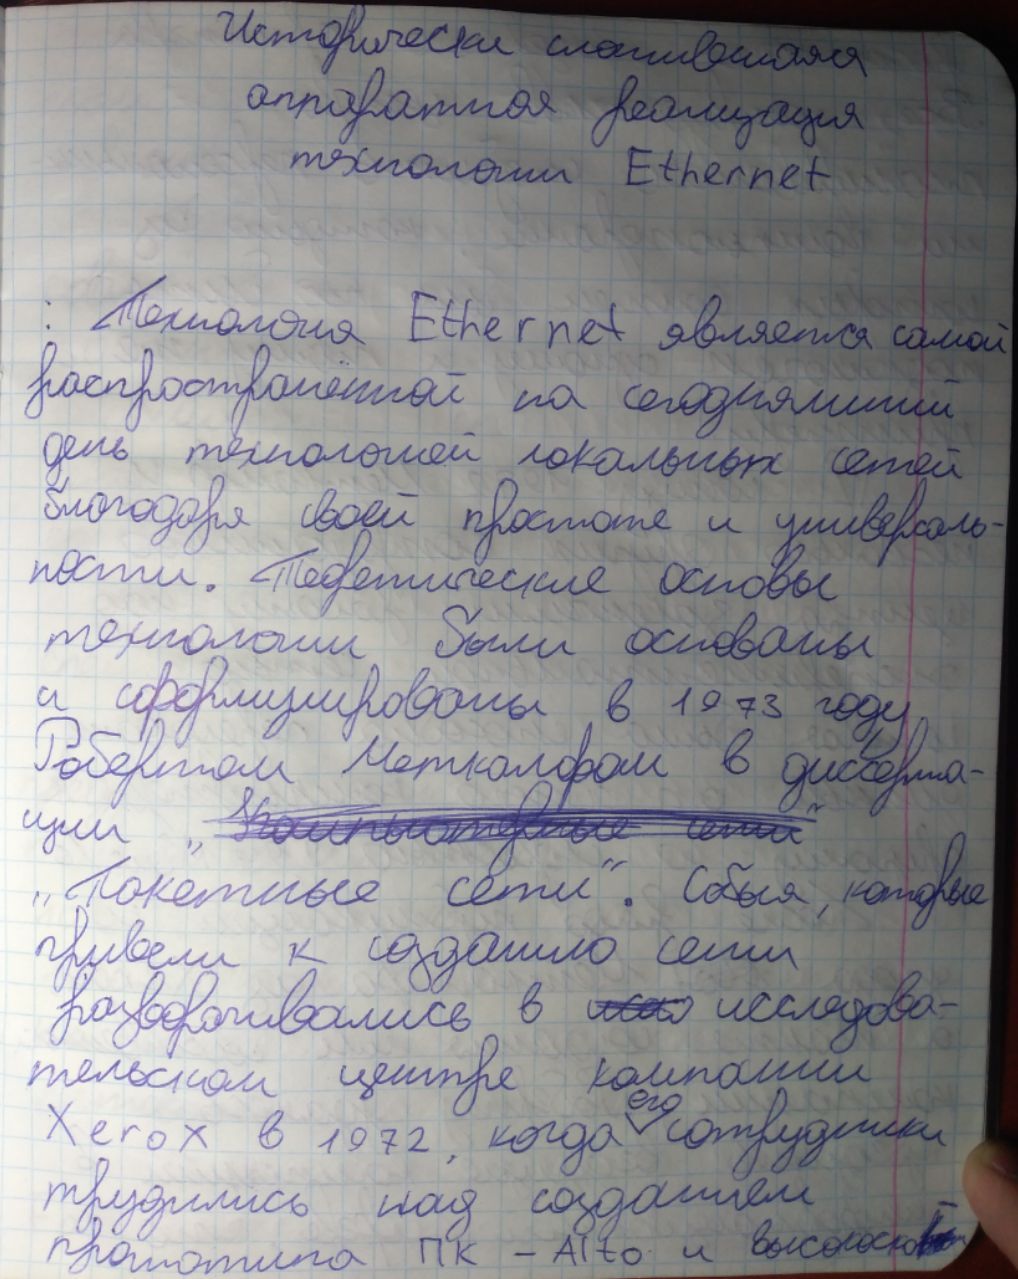 Исторически сложившаяся
аппаратная реализация
технологии Ethernet
: Технология Ethernet является самой
распространённой на сегодняшний
день технологией локальных сетей
благодаря своей простоте и универсаль-
ности. Теоретические основы
технологии были основаны
и сформулированы в 1973 году
Робертом Меткалфом в диссерта-
ции „Компьютерные сети"
„Пакетные сети". Событя, которые
привели к созданию сети
разворачивались в исследова-
тельском центре компании
Xerox в 1972, когда его сотрудники
трудились над созданием
прототипа ПК - Alto и